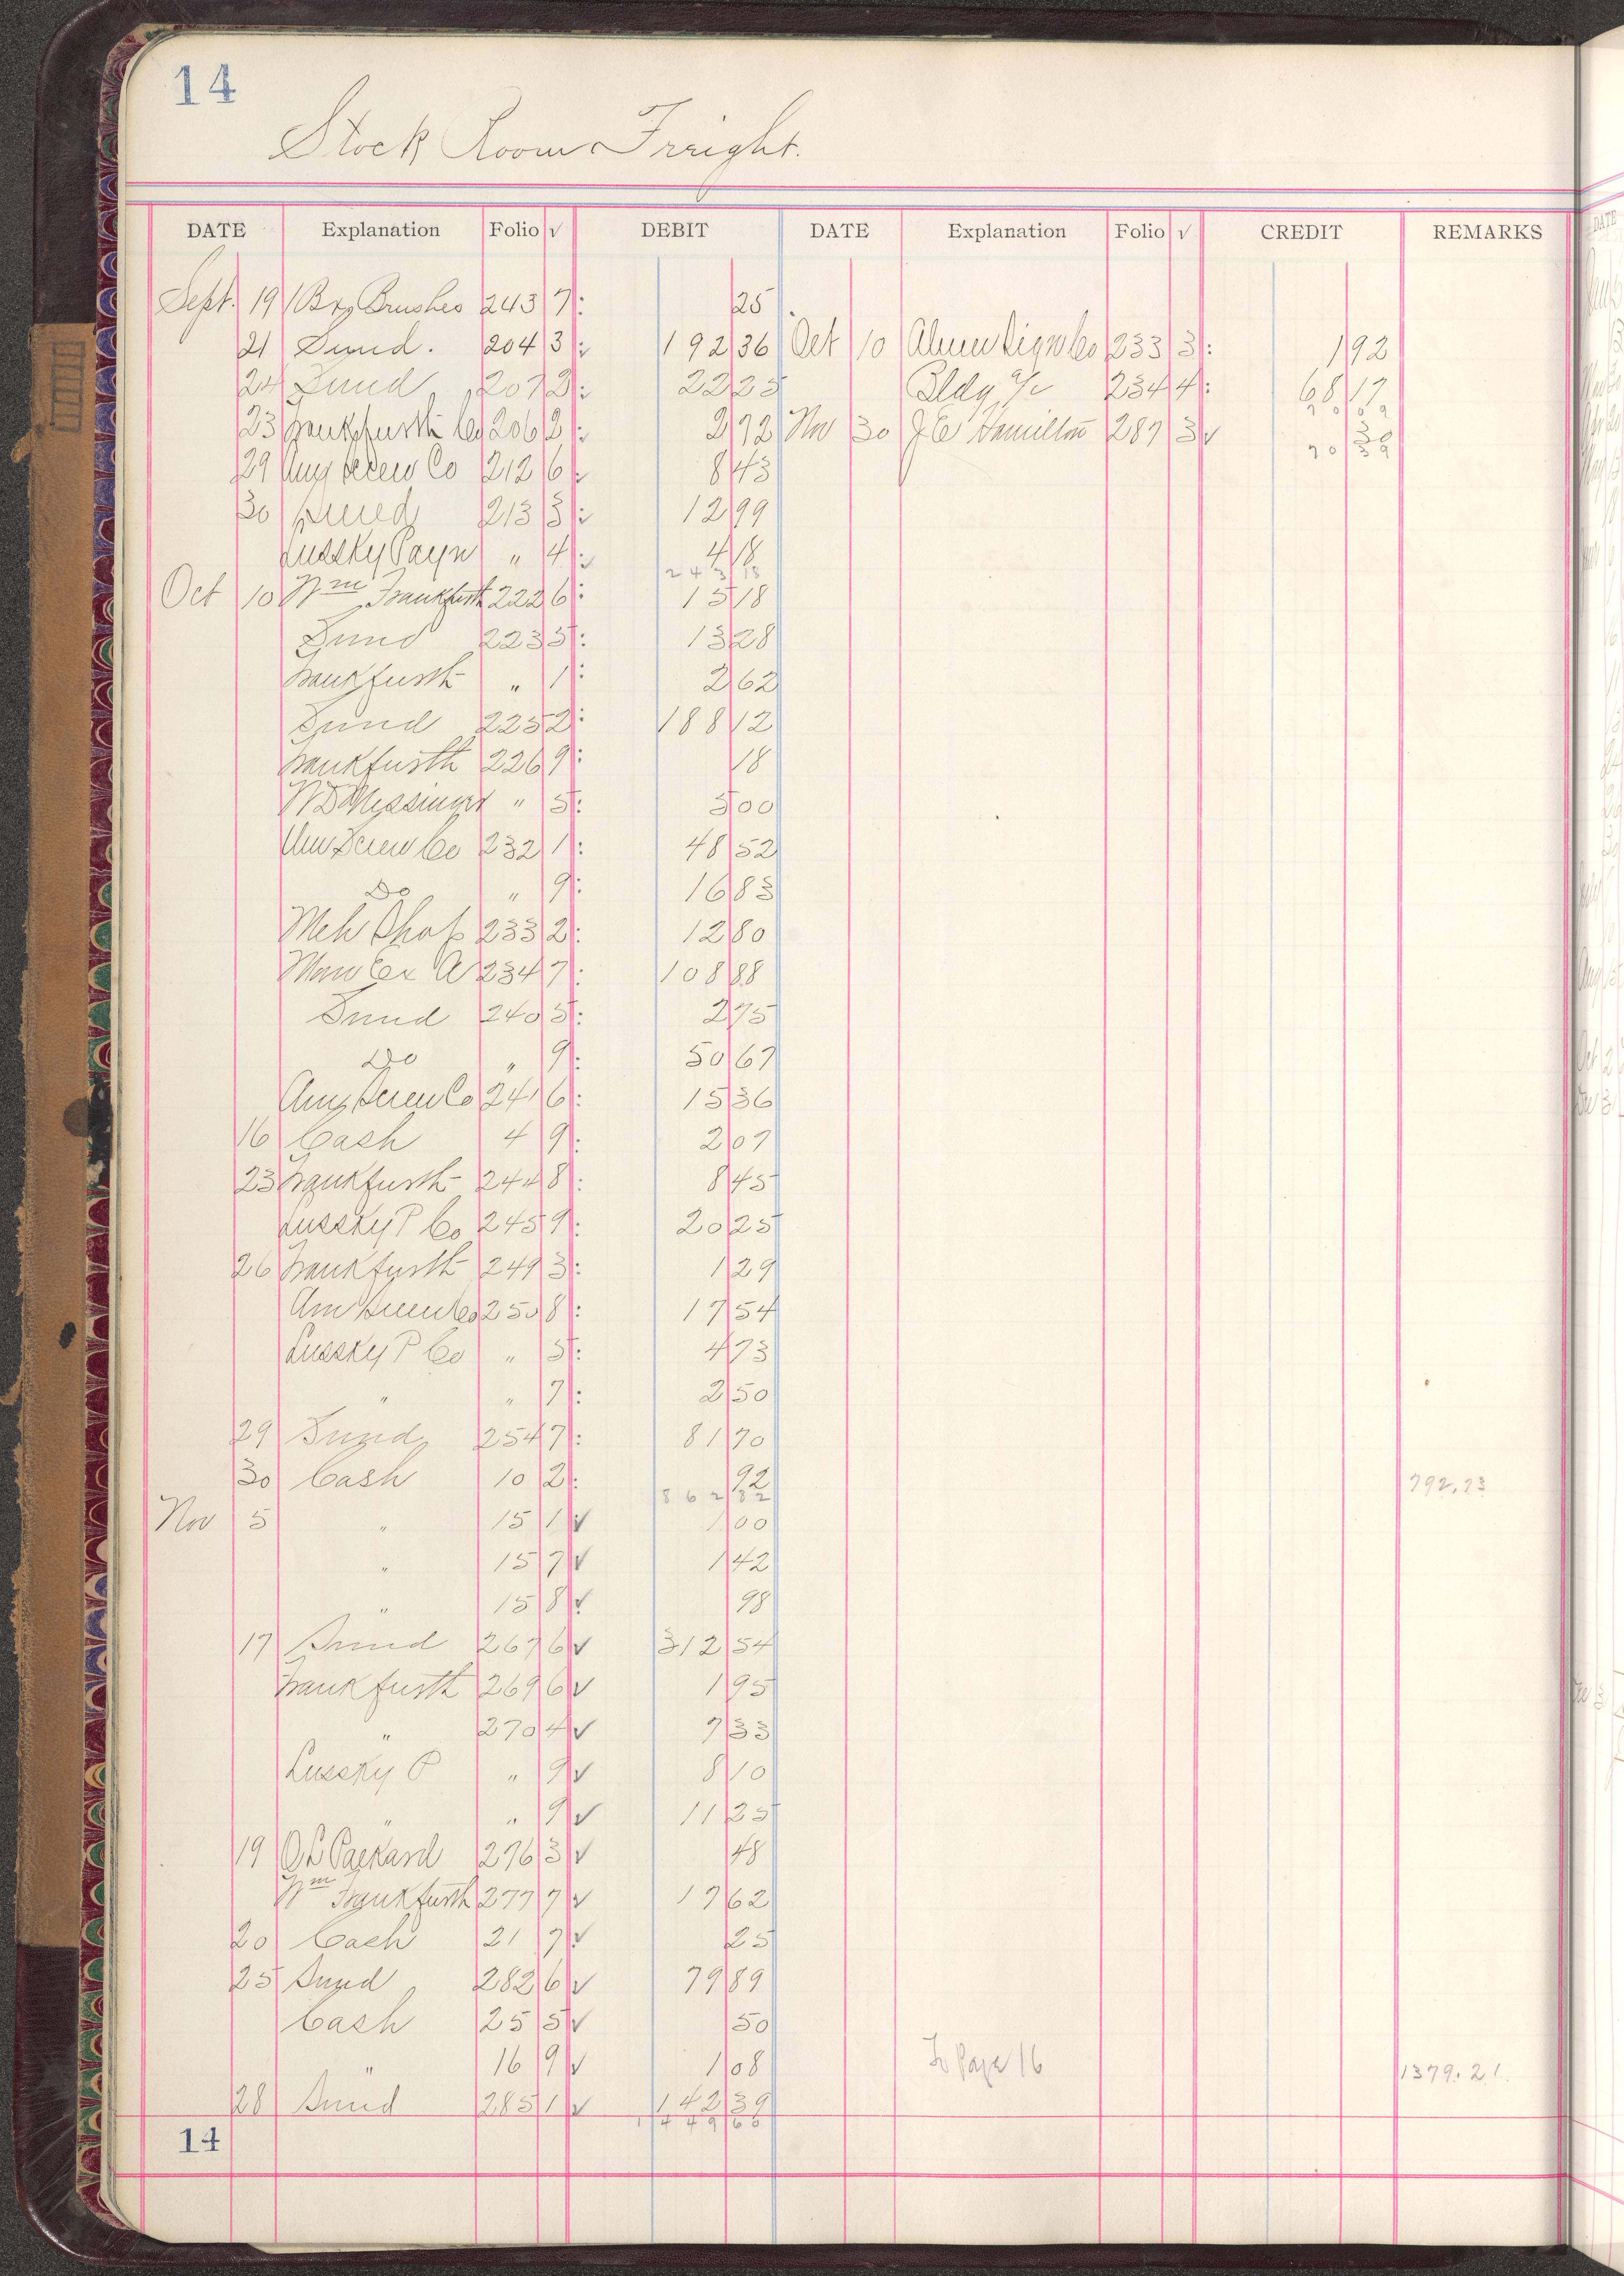 14
Stock Room Freight.
DATE Explanation Folio √ DEBIT DATE Explanation Folio √ CREDIT REMARKS
Sept. 19 1 Bx Brushes 243 7 : 25
21 Sund. 204 3 : 192 36 Oct 10 Alum Sign Co 233 3 : 1 92
24 Sund 207 2 : 22 25 Bldg a/c 234 4 : 68 17
70 09
23 Frankfurth Co 206 2 : 2 72 Nov 30 J E Hamilton 287 3 √ 30
70 39
29 Amer Screw Co 212 6 : 8 43
30 Sund 213 3 : 12 99
Lussky Payn " 4 : 4 18
243 18
Oct 10 Wm Frankfurth 222 6 : 15 18
Sund 223 5 : 13 28
Frankfurth " 1 : 2 62
Sund 225 2 : 188 12
Frankfurth 226 9 : 18
5 : 5 00
Am Screw Co 232 1 : 48 52
Do " 9 : 16 83
Mch Shop 233 2 : 12 80
234 7 : 108 88
Sund 240 5 : 2 75
Do " 9 : 50 67
Amer Screw Co 241 6 : 15 36
16 Cash 4 9 : 2 07
23 Frankfurth 244 8 : 8 45
Lussky P Co 245 9 : 20 25
26 Frankfurth 249 3 : 1 29
Am Screw Co 250 8 : 17 54
Lussky P Co " 5 : 4 73
" " 7 : 2 50
29 Sund 254 7 : 81 70
30 Cash 10 2 : 92 792.73
862 82
Nov 5 " 15 1 √ 1 00
" 15 7 √ 1 42
" 15 8 √ 98
17 Sund 267 6 √ 312 54
Frankfurth 269 6 √ 1 95
" 270 4 √ 7 33
Lussky P " 9 √ 8 10
" " 9 √ 11 25
19 O L Packard 276 3 √ 48
Wm Frankfurth 277 7 √ 17 62
20 Cash 21 7 √ 25
25 Sund 282 6 √ 79 89
Cash 25 5 √ 50
" 16 9 √ 1 08 To Page 16 1379.21
28 Sund 285 1 √ 142 39
1449 60
14